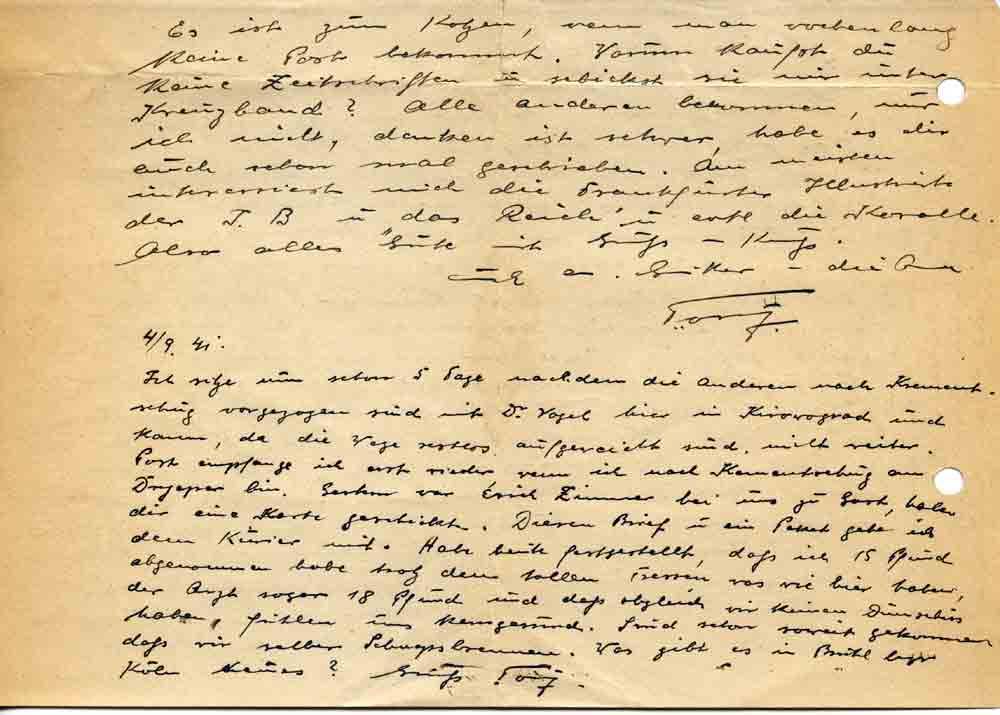 Es ist zum Kotzen, wenn man wochenlang
keine Post bekommt. Warum kaufst du
keine Zeitschriften u schickst sie mir unter
Kreuzband? Alle anderen bekommen, nur
ich nicht, danken ist schwer, habe es dir
auch schon mal geschrieben. Am meisten
interessiert mich die Frankfurter Illustrierte
der J.B u "das Reich" u evtl die Koralle.
Also alles Gute mit Gruß – Kuß.
– die
4/9. 41.
Ich sitze nun schon 5 Tage nachdem die anderen nach Krement-
schug vorgezogen sind mit Dr Vogel hier in Kirowograd und
kann, da die Wege restlos aufgeweicht sind, nicht weiter.
Post empfange ich erst wieder wenn ich nach Kementschug am
Dnjeper bin. Gestern war Erich Zimmer bei uns zu Gast, haben
dir eine Karte geschickt. Diesen Brief u ein Paket gebe ich
dem Kurier mit. Habe heute festgestellt, daß ich 15 Pfund
abgenommen habe trotz dem tollen Fressen was wir hier haben,
der Arzt sogar 18 Pfund und daß obgleich wir keinen Dünschiss
haben, fühlen uns kerngesund. Sind schon soweit gekommen
daß wir selber Schnapsbrennen. Was gibt es in Brühl bzw
Köln neues? Gruß